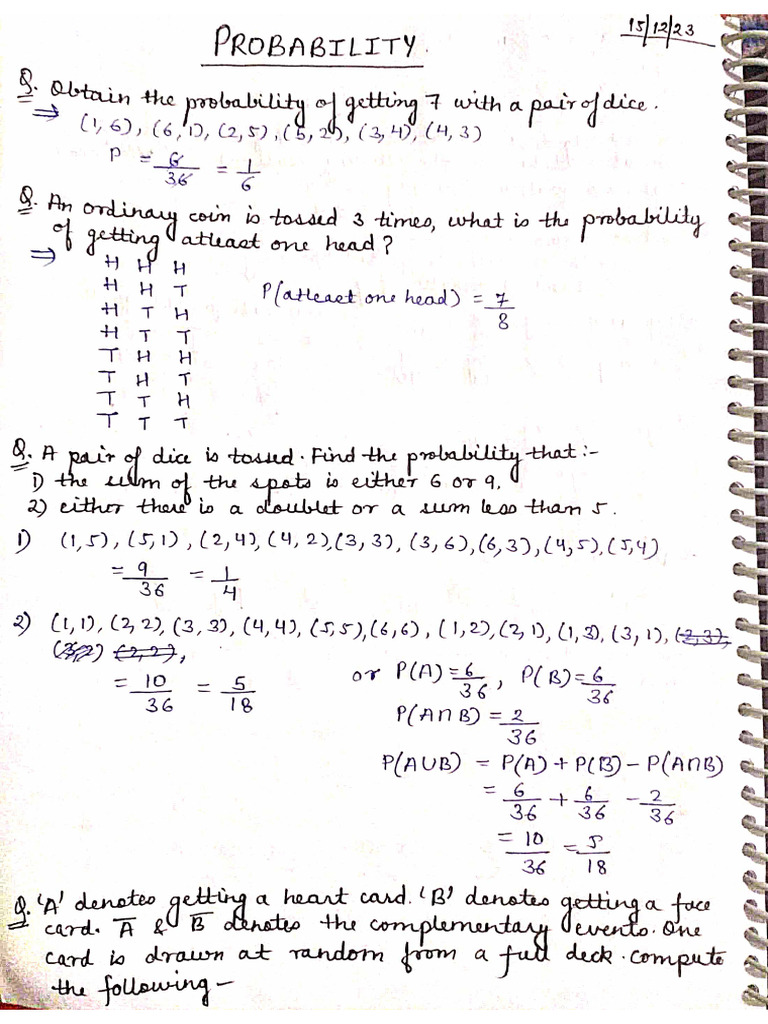 15/12/23
PROBABILITY.
Q. Obtain the probability of getting 7 with a pair of dice.
⇒ (1,6), (6,1), (2,5), (5,2), (3,4), (4,3)
P = 6/36 = 1/6
Q. An ordinary coin is tossed 3 times, what is the probability
of getting atleast one head?
⇒ H H H
H H T
H T H
H T T
T H H
T H T
T T H
T T T
P(atleast one head) = 7/8
Q. A pair of dice is tossed. Find the probability that :-
1) the sum of the spots is either 6 or 9.
2) either there is a doublet or a sum less than 5.
1) (1,5), (5,1), (2,4), (4,2), (3,3), (3,6), (6,3), (4,5), (5,4)
= 9/36 = 1/4
2) (1,1), (2,2), (3,3), (4,4), (5,5), (6,6), (1,2), (2,1), (1,3), (3,1),
= 10/36 = 5/18
or P(A) = 6/36, P(B) = 6/36
P(A∩B) = 2/36
P(A∪B) = P(A) + P(B) - P(A∩B)
= 6/36 + 6/36 - 2/36
= 10/36 = 5/18
Q. 'A' denotes getting a heart card. 'B' denotes getting a face
card. A̅ & B̅ denotes the complementary events. One
card is drawn at random from a full deck. compute
the following -